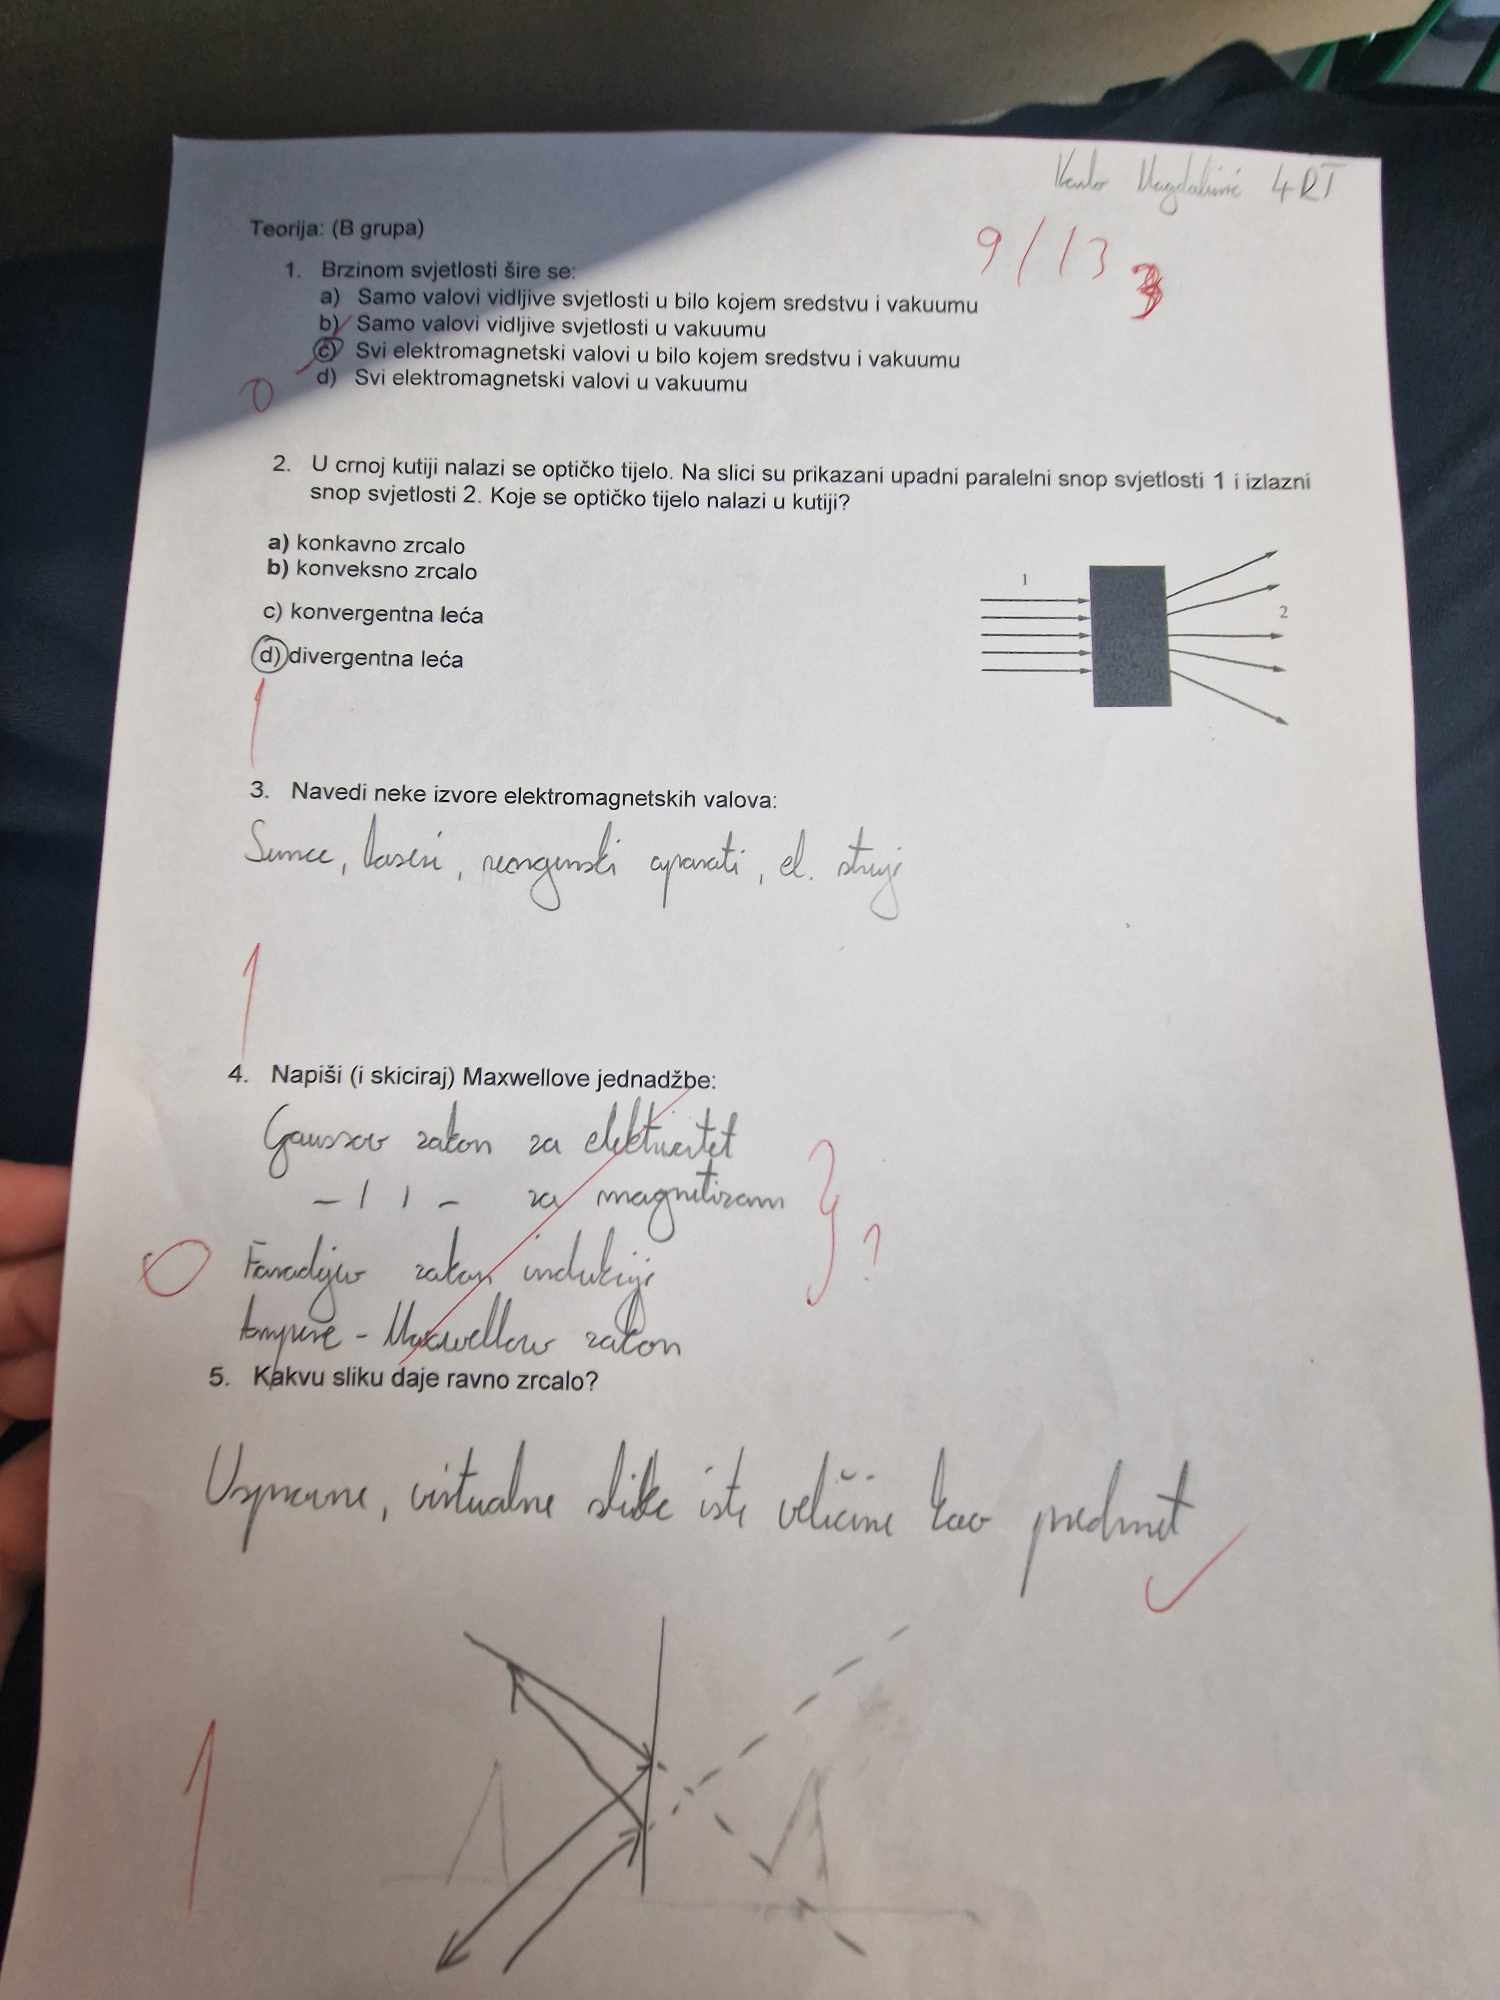 4RT
9/13
3
Teorija: (B grupa)
1. Brzinom svjetlosti šire se:
a) Samo valovi vidljive svjetlosti u bilo kojem sredstvu i vakuumu
b) Samo valovi vidljive svjetlosti u vakuumu
c) Svi elektromagnetski valovi u bilo kojem sredstvu i vakuumu
d) Svi elektromagnetski valovi u vakuumu
0
2. U crnoj kutiji nalazi se optičko tijelo. Na slici su prikazani upadni paralelni snop svjetlosti 1 i izlazni
snop svjetlosti 2. Koje se optičko tijelo nalazi u kutiji?
a) konkavno zrcalo
b) konveksno zrcalo
c) konvergentna leća
d) divergentna leća
1
2
1
3. Navedi neke izvore elektromagnetskih valova:
Sunce, laseri, rengenski aparati, el. struj
1
4. Napiši (i skiciraj) Maxwellove jednadžbe:
Gaussov zakon za elektricitet
-11- za magnetizam
?
0
Faradejev zakon indukcije
Ampere-Maxwellov zakon
5. Kakvu sliku daje ravno zrcalo?
Uspravne, virtualne slike iste veličine kao predmet
1